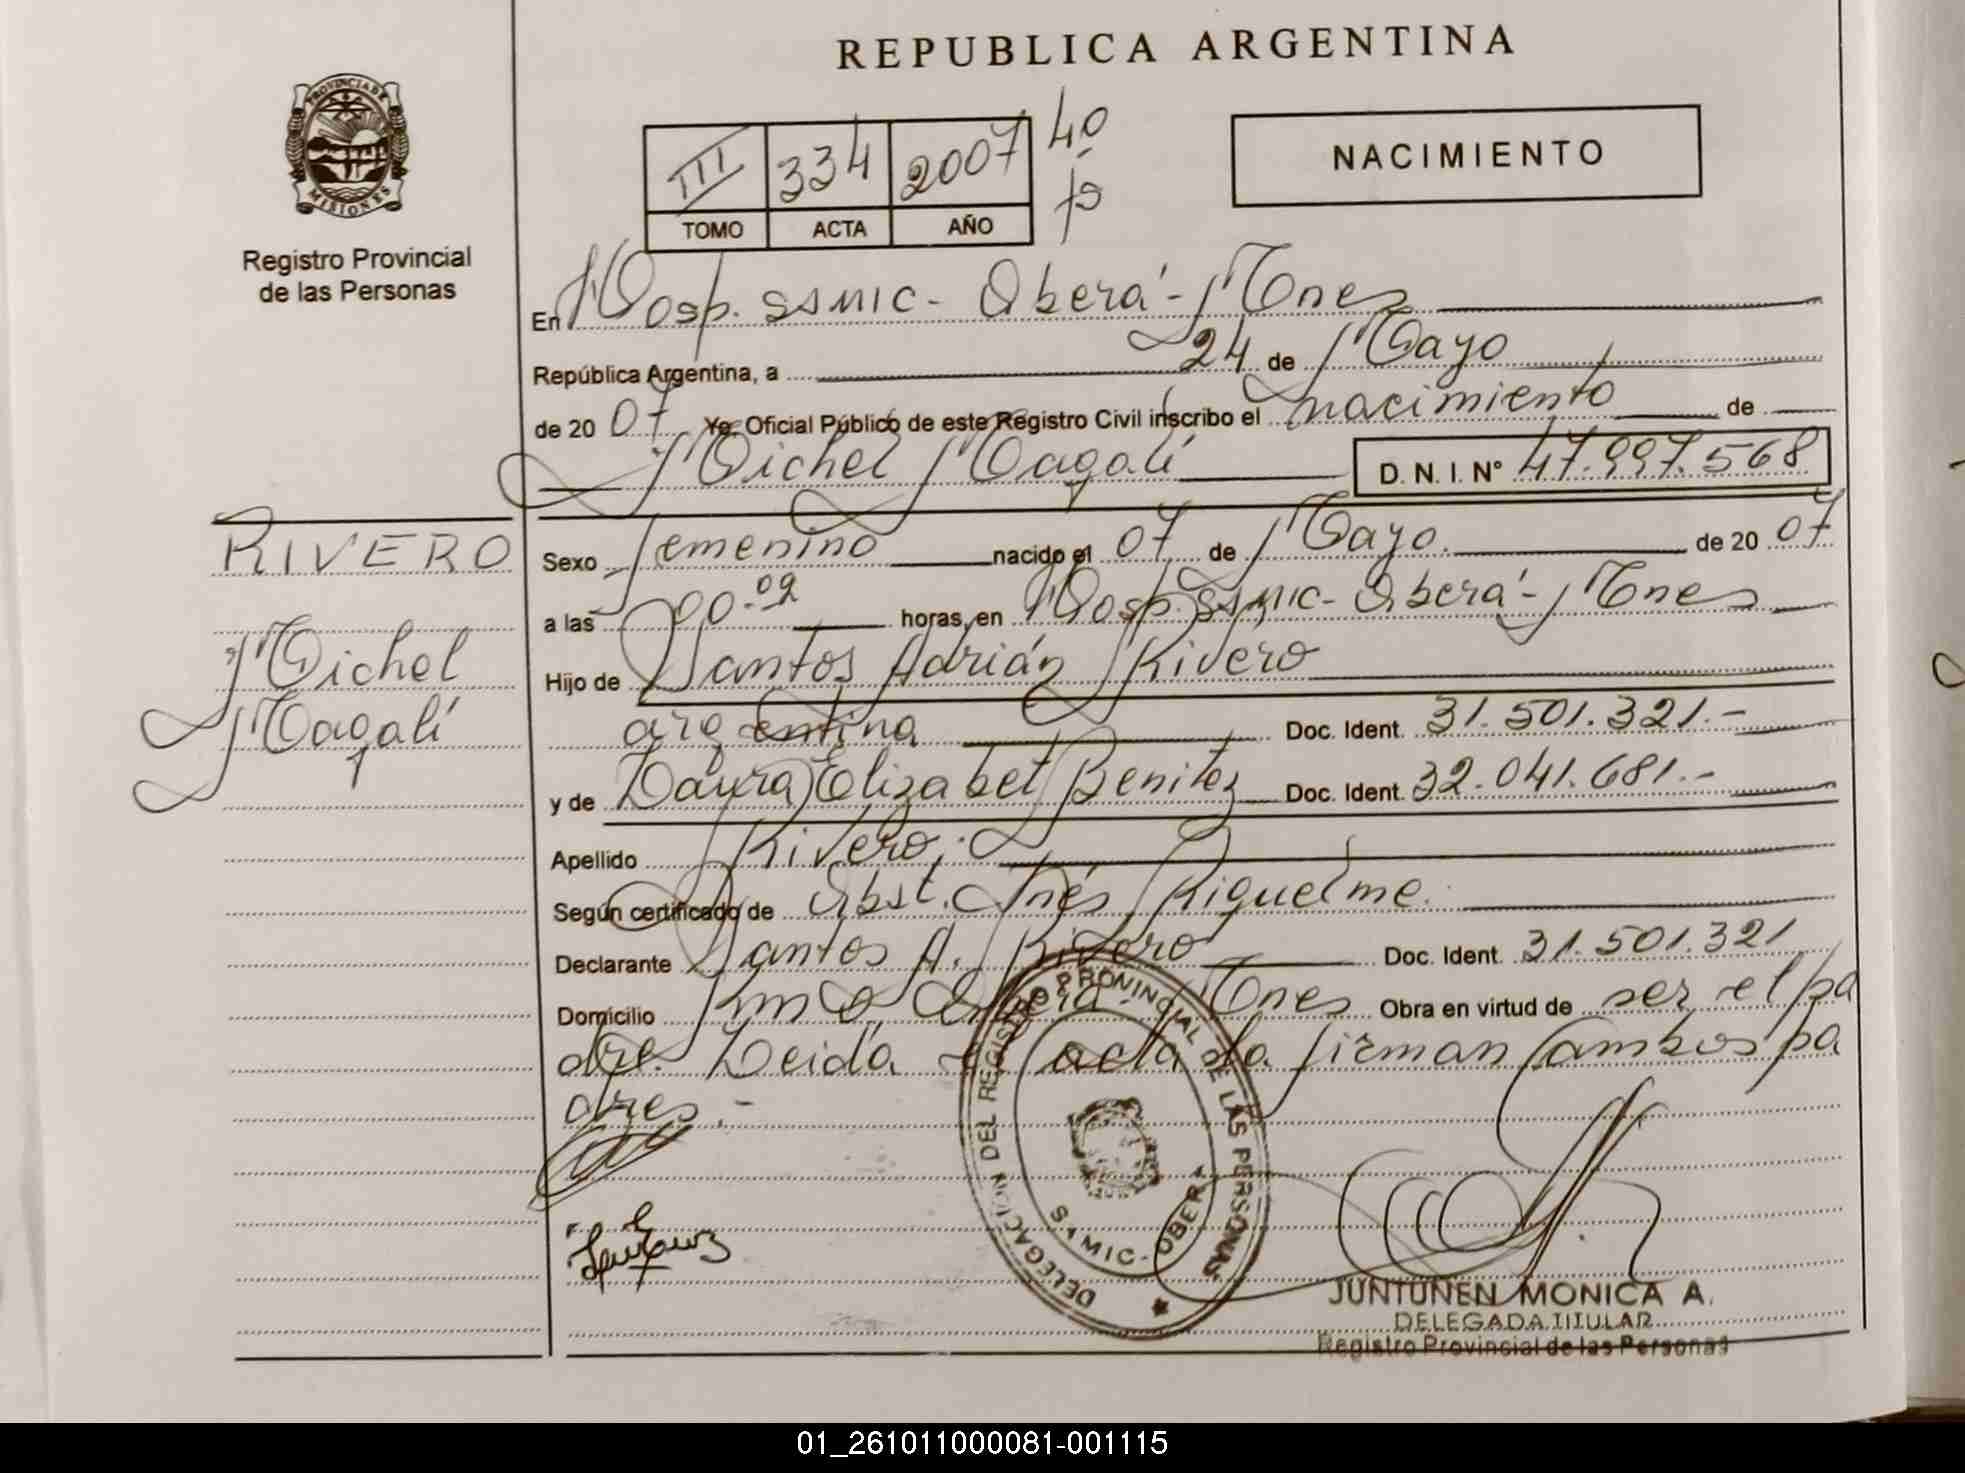 REPUBLICA ARGENTINA
PROVINCIA DE MISIONES
Registro Provincial
de las Personas
III 334 2007 40
TOMO ACTA AÑO
NACIMIENTO
En Hosp. SAMIC - Oberá - Mnes
República Argentina, a 24 de Mayo
de 2007 Yo, Oficial Público de este Registro Civil inscribo el nacimiento de
Michel Magalí D. N. I. Nº 47.997.568
RIVERO
Michel
Magalí
Sexo femenino nacido el 07 de Mayo de 2007
a las 00.02 horas, en Hosp. SAMIC - Oberá - Mnes
Hijo de Santos Adrián Rivero
argentina Doc. Ident. 31.501.321.-
y de Laura Elizabet Benitez Doc. Ident. 32.041.681.-
Apellido Rivero.
Según certificado de Obst. Inés Riquelme.
Declarante Santos A. Rivero Doc. Ident. 31.501.321
Domicilio Km 0 Oberá - Mnes Obra en virtud de ser el pa
dre. Leida el acta la firman ambos pa
dres.-
DELEGACION DEL REGISTRO PROVINCIAL DE LAS PERSONAS
SAMIC - OBERA
JUNTUNEN MONICA A.
DELEGADA TITULAR
Registro Provincial de las Personas
01_261011000081-001115